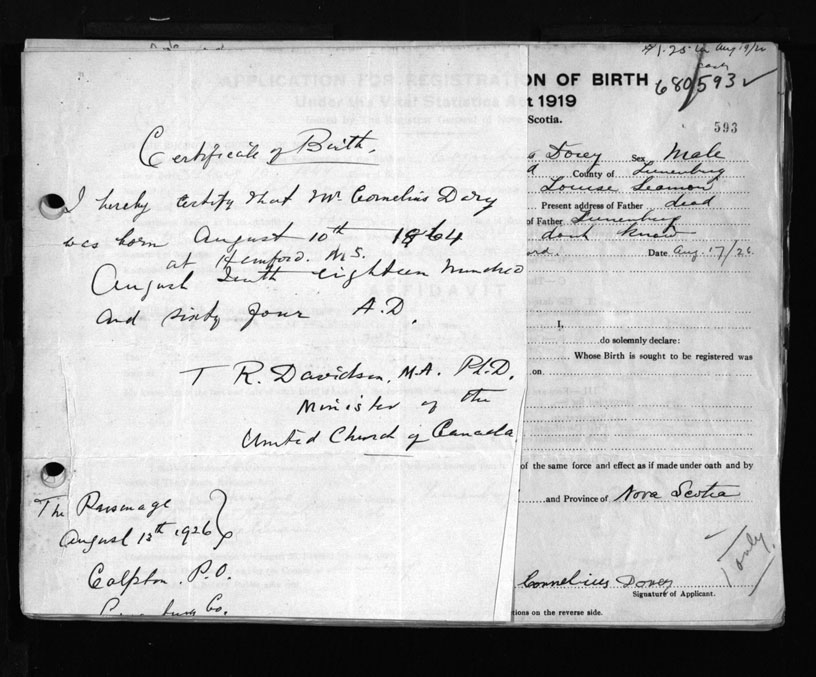 Certificate of Birth.
I hereby certify that Mr Cornelius Dory
was born August 10th 1864
at Hemford. N.S.
August Tenth eighteen hundred
and sixty four A.D.
T R. Davidson, M.A. Ph.D.
Minister of the
United Church of Canada
The Parsonage
August 12th 1926
Colpton. P.O.
Lunenburg Co.
$1.25 Aug 19/26
ON OF BIRTH 680593 ✓
t 1919
Scotia.
593
Dorey Sex Male
County of Lunenburg
Louise Seamon
Present address of Father dead
of Father Lunenburg
dont know
ord. Date Aug 17/26
APPLICATION FOR REGISTRATION
Under the Vital Statistics Act
AFFIDAVIT
I,
do solemnly declare:
Whose Birth is sought to be registered was
on
of the same force and effect as if made under oath and by
and Province of Nova Scotia
1 only.
Cornelius Dorey
Signature of Applicant.
tions on the reverse side.